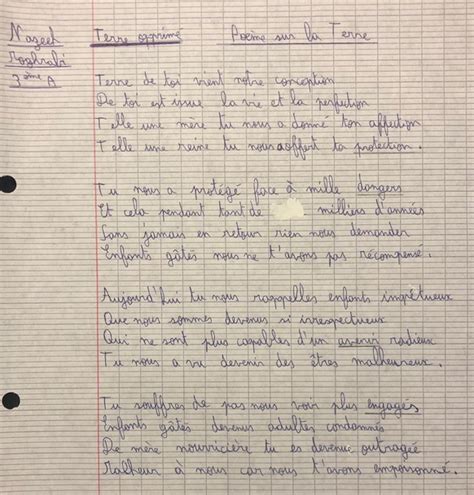 Nazeeh Terre opprimé Poème sur la Terre
Roghrabi
3ème A
Terre de toi vient notre conception
De toi est issue la vie et la perfection
Telle une mère tu nous a donné ton affection
Telle une reine tu nous a offert ta protection.
Tu nous a protégé face à mille dangers
Et cela pendant tant de milliers d'années
Sans jamais en retour rien nous demander
Enfants gâtés nous ne t'avons pas récompensé.
Aujourd'hui tu nous rappelles enfants impétueux
Que nous sommes devenus si irrespectueux
Qui ne sont plus capables d'un avenir radieux
Tu nous a vu devenir des êtres malheureux.
Tu souffres de pas nous voir plus engagés
Enfants gâtés devenus adultes condamnés
De mère nourricière tu es devenue outragée
Malheur à nous car nous t'avons empoisonné.